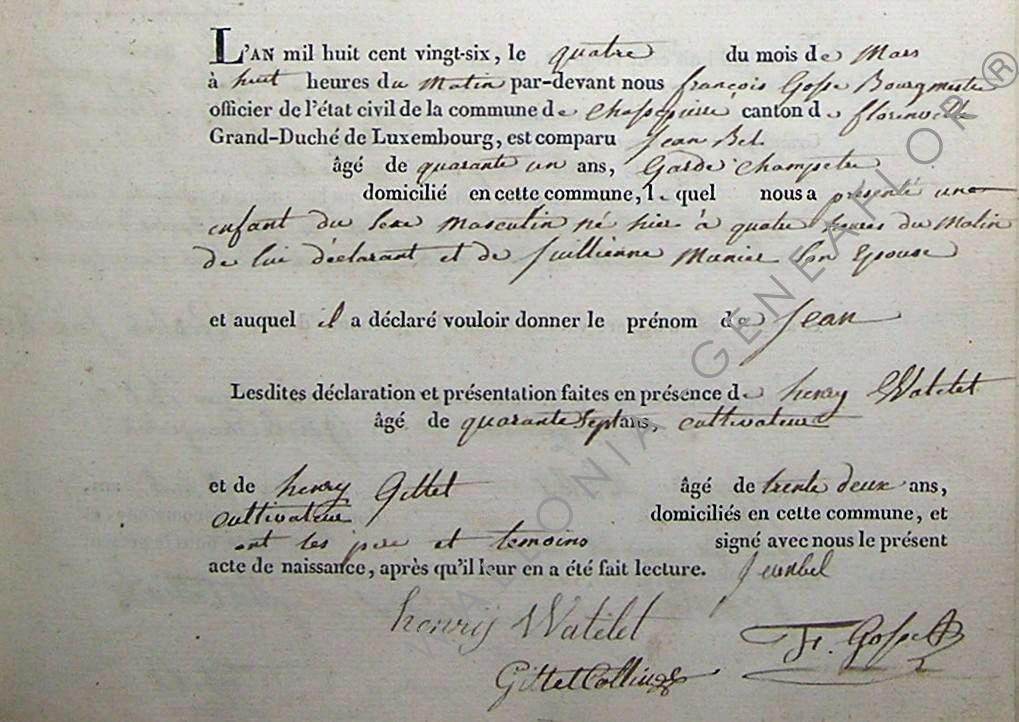 L'AN mil huit cent vingt-six, le quatre du mois de Mars
à huit heures du Matin par-devant nous françois Gosse Bourgmestre
officier de l'état civil de la commune de Chassepierre canton de florenville
Grand-Duché de Luxembourg, est comparu Jean Bel
âgé de quarante un ans, Garde Champetre
domicilié en cette commune, le quel nous a présenté un
enfant du Sexe Masculin né hier à quatre heures du Matin
de lui déclarant et de Juillienne Munier Son Epouse
et auquel il a déclaré vouloir donner le prénom de Jean
Lesdites déclaration et présentation faites en présence de henry Watelet
âgé de quarante Sept ans, cultivateur
et de henry Gittet âgé de trente deux ans,
cultivateur domiciliés en cette commune, et
ont les pere et temoins signé avec nous le présent
acte de naissance, après qu'il leur en a été fait lecture. Jeanbel
henry Watelet F. Gosse
Gittet
GENEAFLOR ®